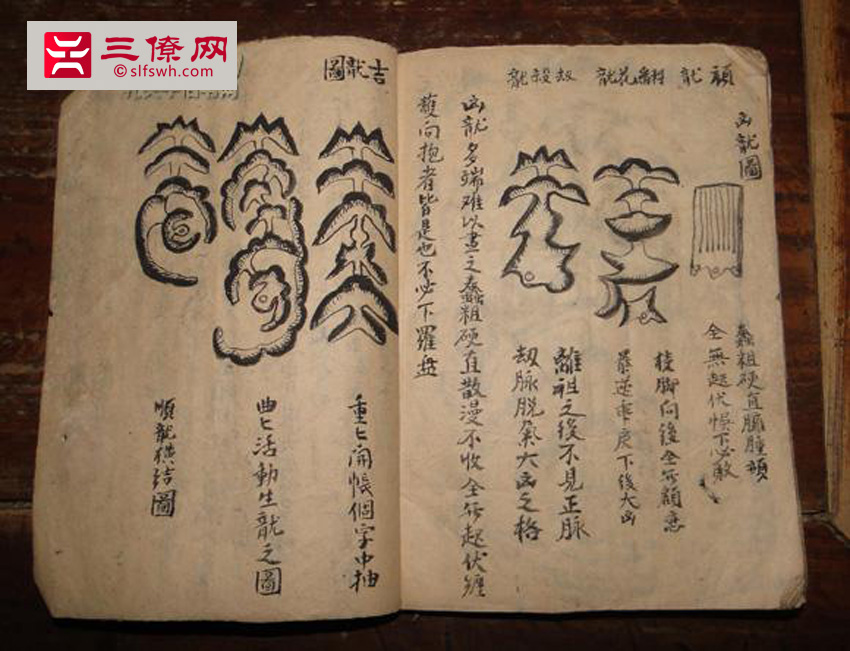 三僚网
©slfswh.com
頑龍 翻花龍 刼殺龍
凶龍圖
蠢粗硬直臃腫頑
全無起伏悮下必敗
棱脚向後全无顧意
暴逆乖戾下後大凶
離祖之後不見正脉
刼脉脱氣大凶之格
凶龍多端难以畫之蠢粗硬直散漫不收全无起伏纏
護向抱者皆是也不必下羅盘
吉龍圖
重〻開帳個字中抽
曲〻活動生龍之圖
順龍横结圖